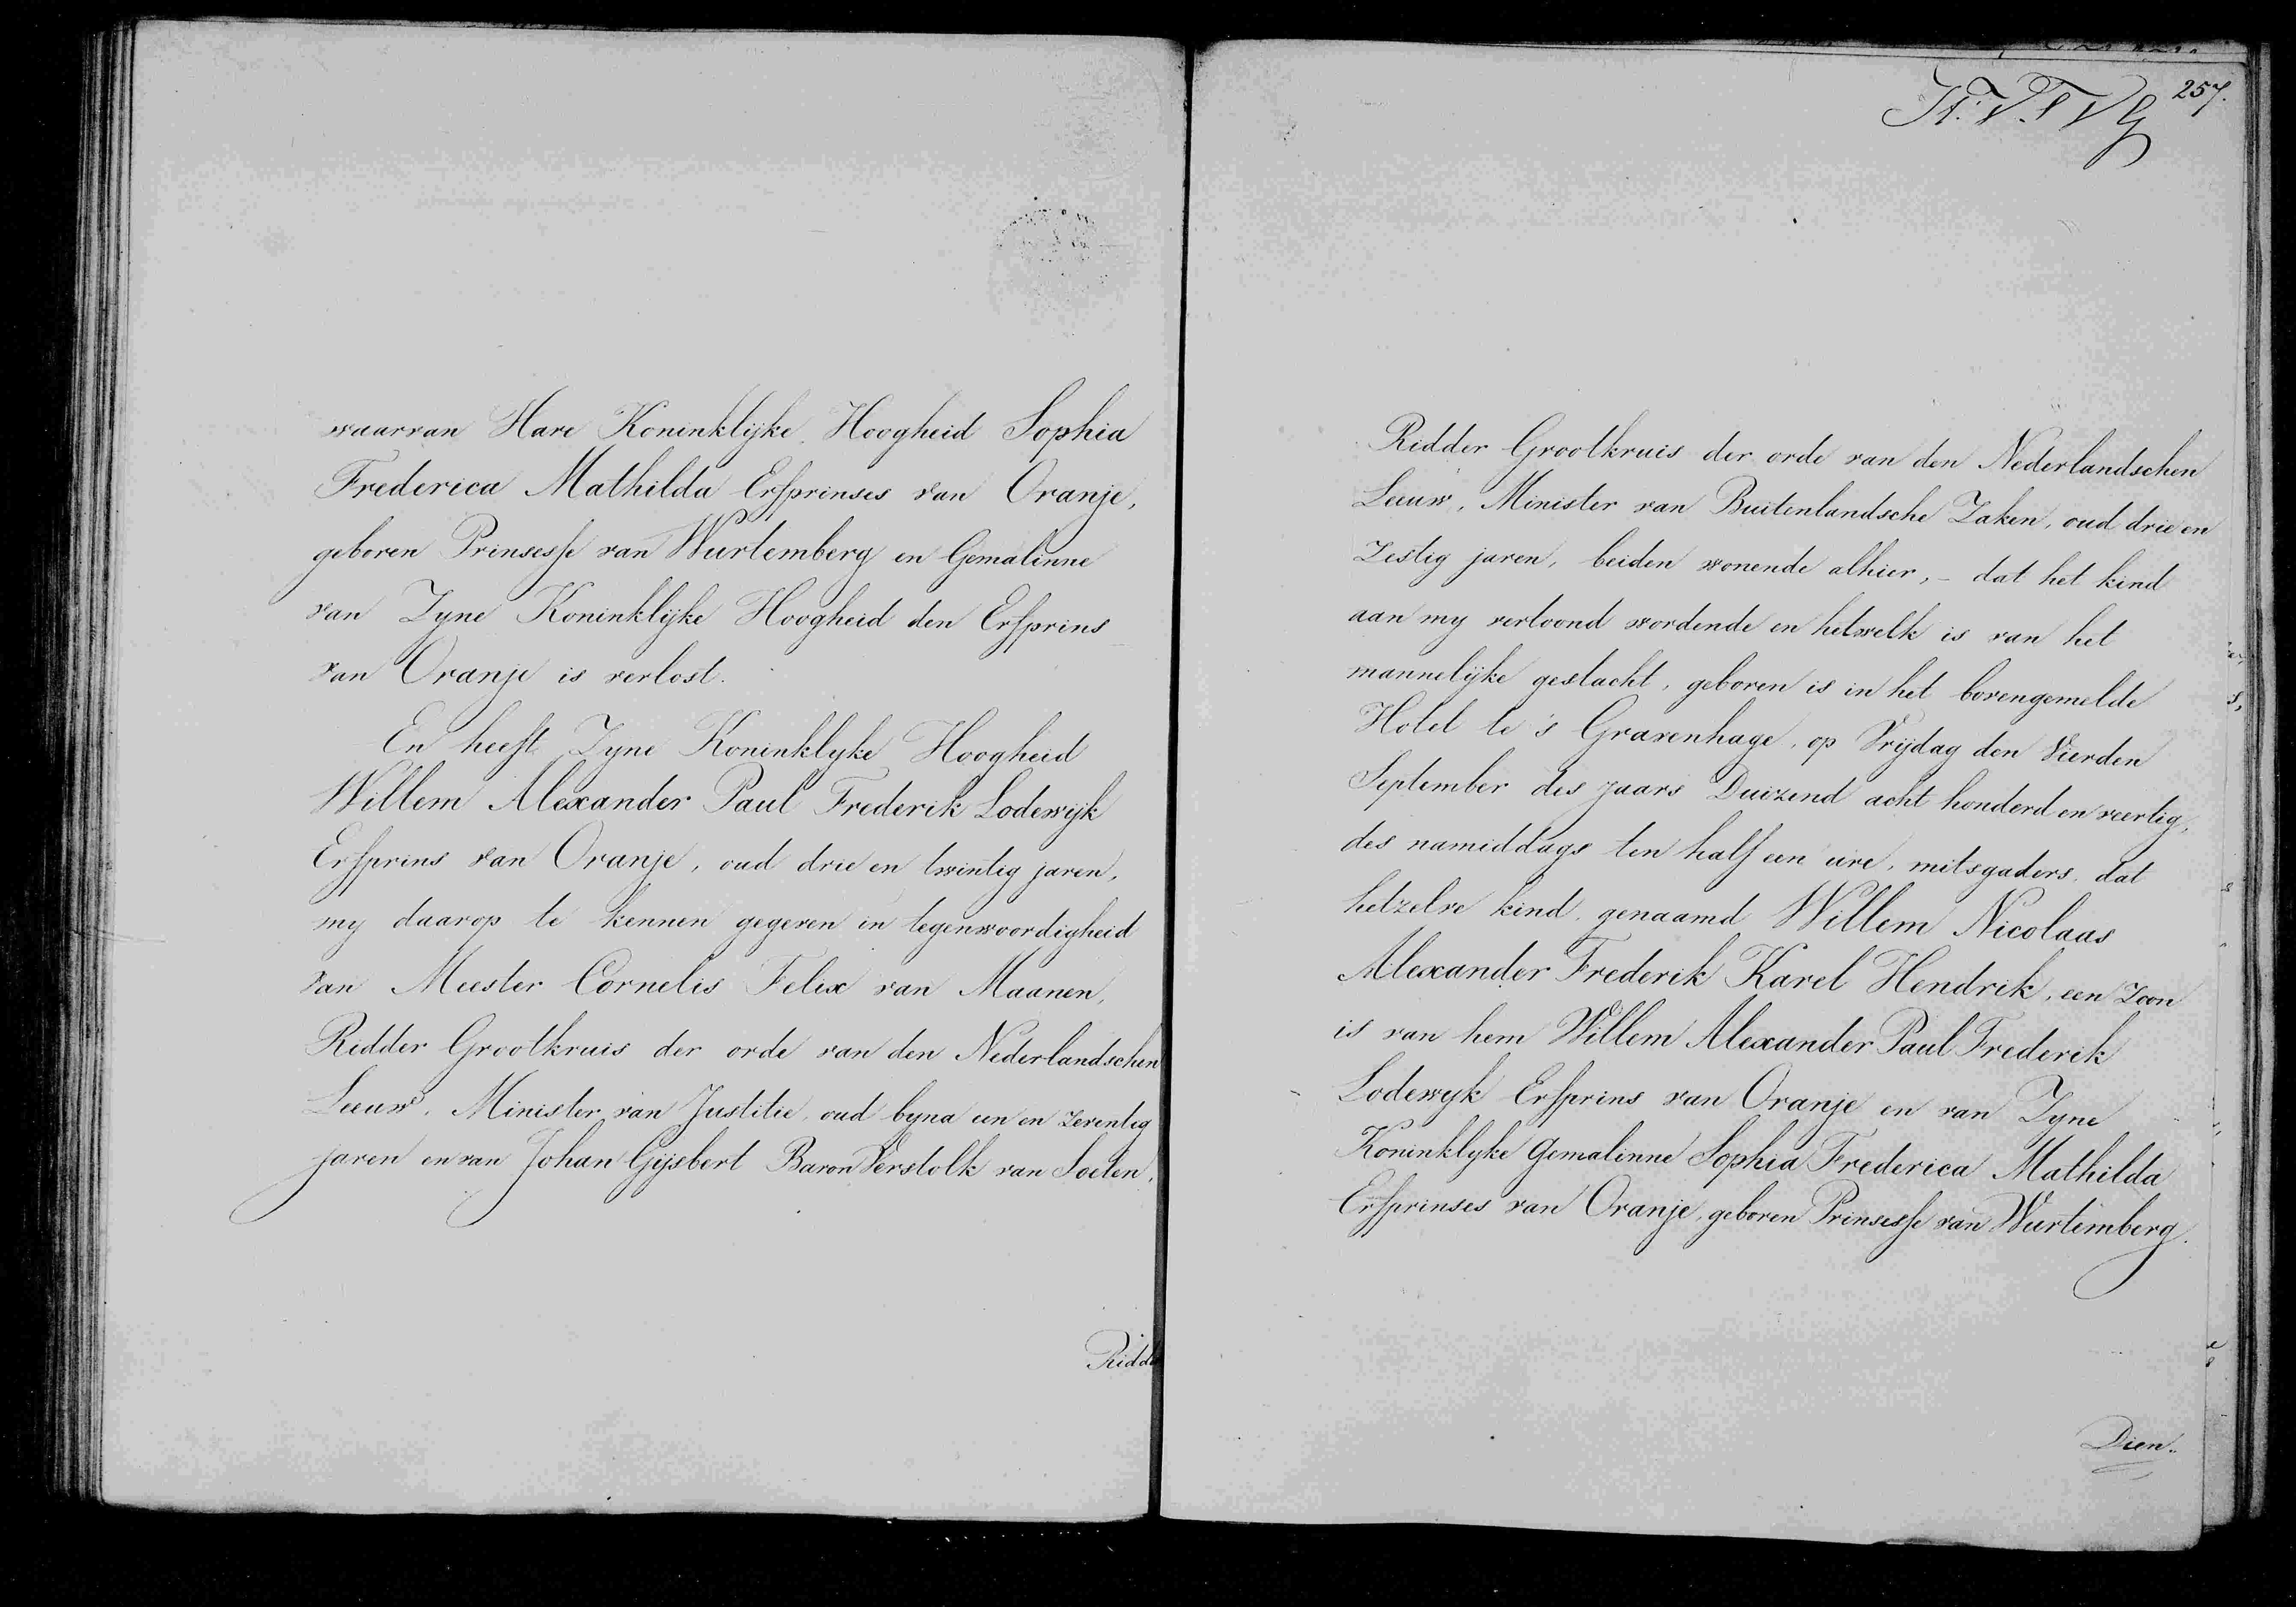 waarvan Hare Koninklijke Hoogheid Sophia
Frederica Mathilda Erfprinses van Oranje,
geboren Prinsesse van Wurtemberg en Gemalinne
van Zyne Koninklijke Hoogheid den Erfprins
van Oranje is verlost.
En heeft Zyne Koninklyke Hoogheid
Willem Alexander Paul Frederik Lodewijk
Erfprins van Oranje, oud drie en twintig jaren,
my daarop te kennen gegeven in tegenwoordigheid
van Meester Cornelis Felix van Maanen,
Ridder Grootkruis der orde van den Nederlandschen
Leeuw, Minister van Justitie, oud byna een en zeventig
jaren en van Johan Gijsbert Baron Verstolk van Soelen,
Ridde
257.
Ridder Grootkruis der orde van den Nederlandschen
Leeuw, Minister van Buitenlandsche Zaken, oud drie en
Zestig jaren, beiden wonende alhier, – dat het kind
aan my vertoond wordende en hetwelk is van het
mannelijke geslacht, geboren is in het bovengemelde
Hotel te 's Gravenhage, op Vrijdag den Vierden
September des jaars Duizend acht honderd en veertig,
des namiddags ten half een ure, mitsgaders, dat
hetzelve kind, genaamd Willem Nicolaas
Alexander Frederik Karel Hendrik, een Zoon
is van hem Willem Alexander Paul Frederik
Lodewyk Erfprins van Oranje en van Zyne
Koninklyke Gemalinne Sophia Frederica Mathilda
Erfprinses van Oranje, geboren Prinsesse van Wurtemberg.
Dien..